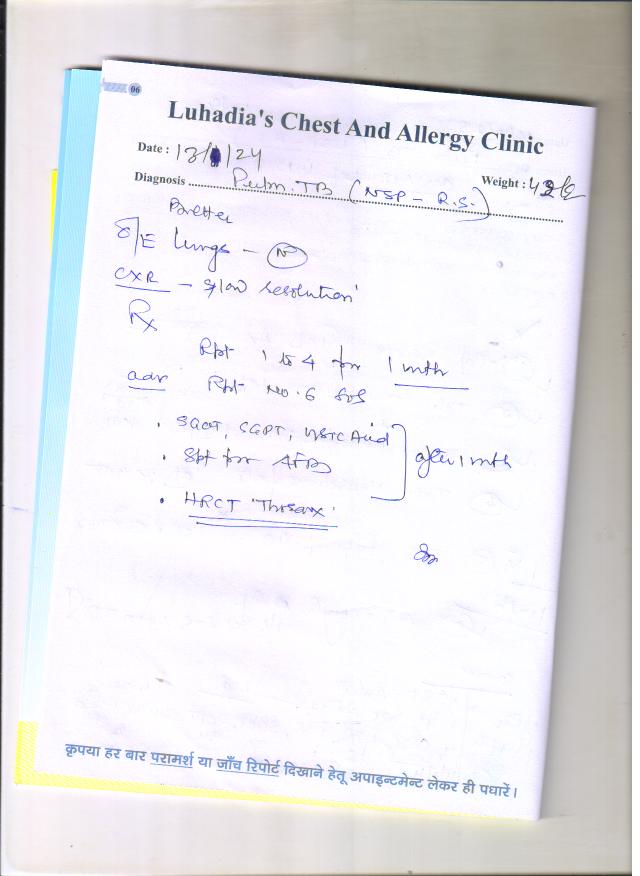 06
Luhadia's Chest And Allergy Clinic
Date : 13/ /24
Weight :
Diagnosis Pulm. TB (NSP - R.S.)
Better
O/E lungs - N
CXR - slow resolution
Rx
Rpt 1 to 4 for 1 mth
adv Rpt No. 6 SOS
• SGOT, SGPT, Uric Acid
• Spt for AFB
after 1 mth
• HRCT 'Thorax'
कृपया हर बार परामर्श या जाँच रिपोर्ट दिखाने हेतू अपाइन्टमेन्ट लेकर ही पधारें।